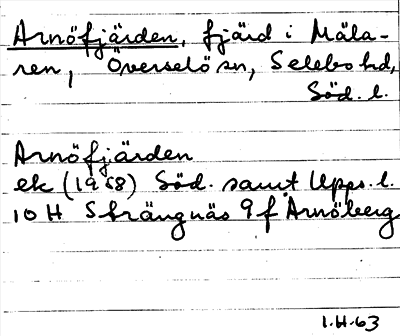 Arnöfjärden, fjärd i Mäla-
ren, Överselö sn, Selebo hd,
Söd. l.
Arnöfjärden
ek (1958) Söd. samt Upps. l.
10 H Strängnäs 9 f Arnöberg
1.H.63